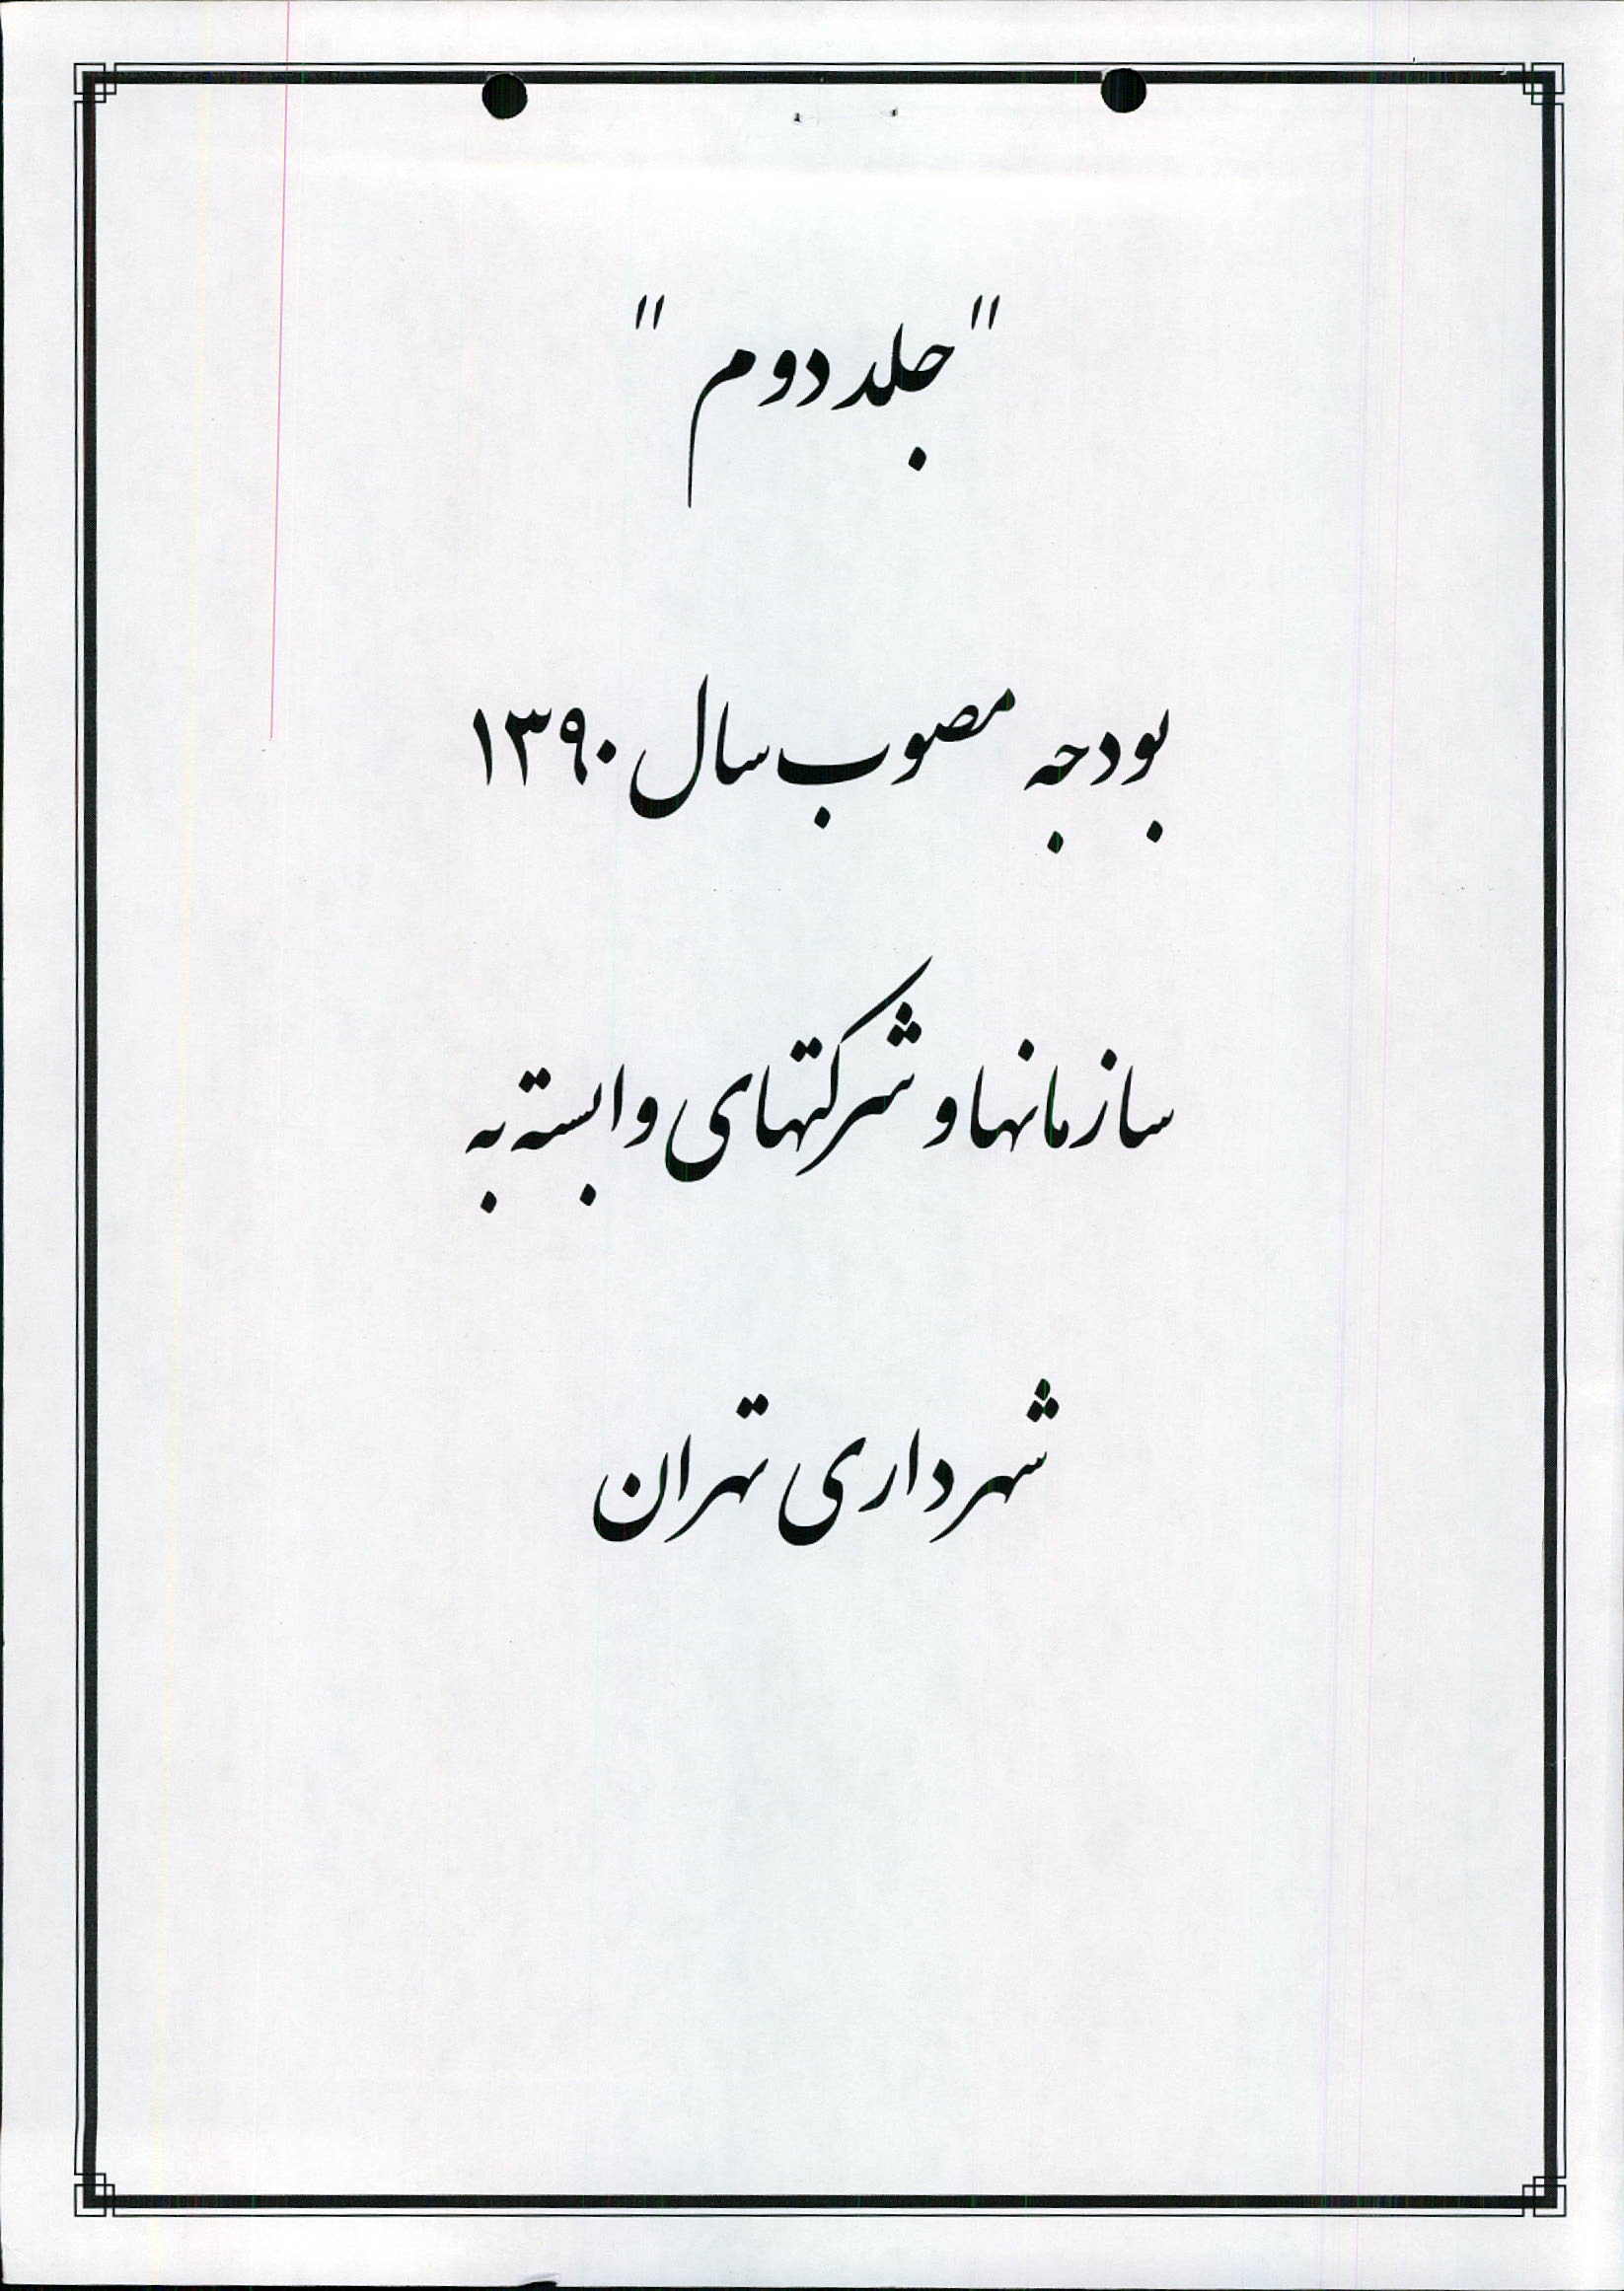 "جلد دوم"
بودجه مصوب سال ۱۳۹۰
سازمانها و شرکتهای وابسته به
شهرداری تهران